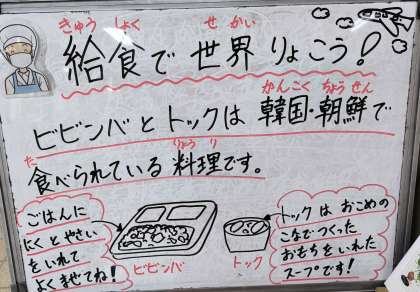 きゅう しょく せ かい
給食で 世界 りょこう!
かんこく ちょうせん
ビビンバ と トック は 韓国・朝鮮 で
た りょう り
食べられている 料理です。
ごはんに
にくとやさい
をいれて
よくまぜてね!
ビビンバ
トック
トック は おこめの
こなでつくった
おもちをいれた
スープです!